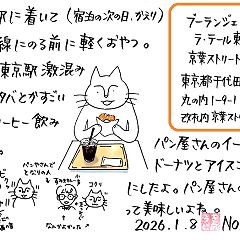 駅に着いて（宿泊の次の日、かえり）
線にのる前に軽くおやつ。
東京駅 激混み
タバとかすごい
コーヒー飲み
ブーランジェ
ラ・テール東
京葉ストリート
東京都千代田
丸の内1-9-1
改札内 京葉スト
パンやさんで
となりの人
コクリ
なんかよかった
パン屋さんのイー
ドーナツとアイスコ
にしたよ。パン屋さん
って美味しいよね。
2026.1.8
No